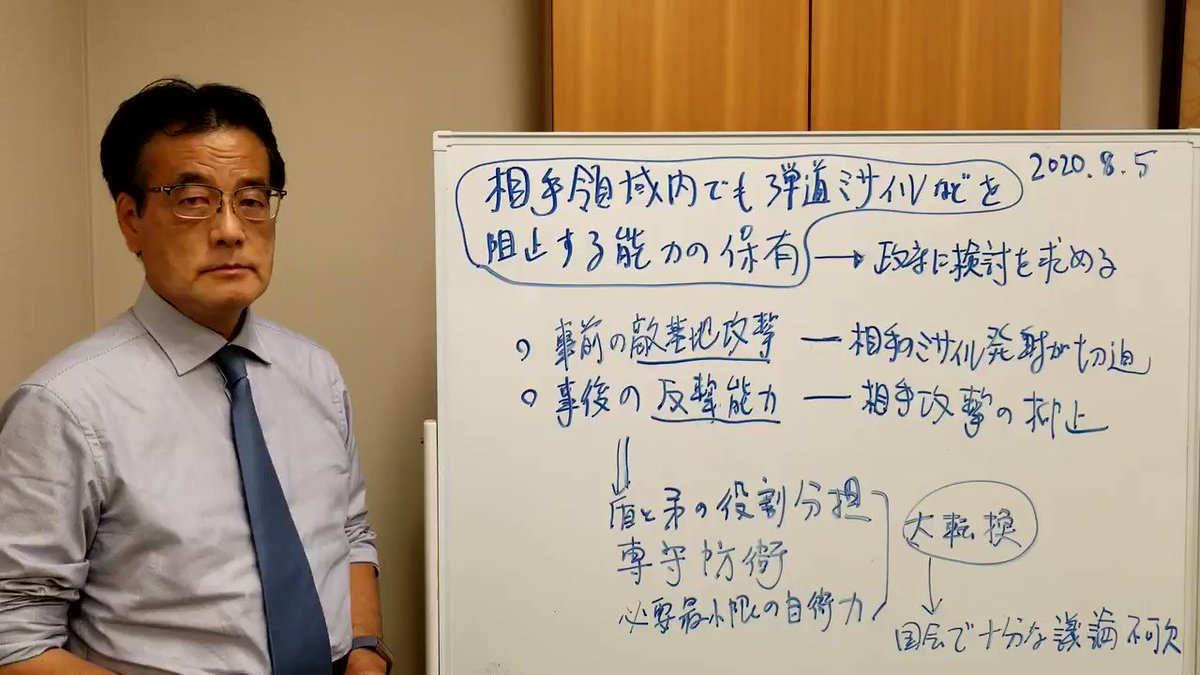 2020.8.5
相手領域内でも弾道ミサイルなどを
阻止する能力の保有 → 政府に検討を求める
○ 事前の敵基地攻撃 ― 相手のミサイル発射が切迫
○ 事後の反撃能力 ― 相手攻撃の抑止
盾と矛の役割分担
専守防衛
必要最小限の自衛力
大転換
国会で十分な議論不可欠